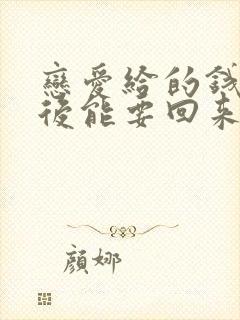 戀愛給的錢
後能要回來
顔娜